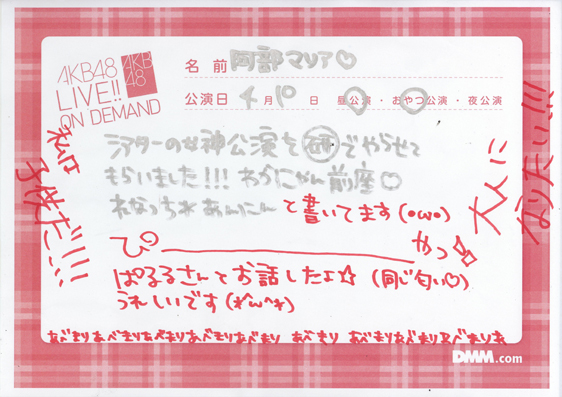 AKB48
LIVE!!
ON DEMAND
AKB
48
名前 阿部マリア♡
公演日 4月10日 昼公演・おやつ公演・夜公演
シアターの女神公演を
でやらせて
もらいました!!! わかにゃん前座♡
れなっち*あんにん と書いてます(・ω・)
ぴ
やっ☆
ぱるるさんとお話したよ☆ (同じ匂い♡)
うれしいです
子供だ!!!
大人に
なりたい!!!
あべまりあべまりあべまりあべまりあべまり あべまり あべまりあべまりあべまりあ
DMM.com